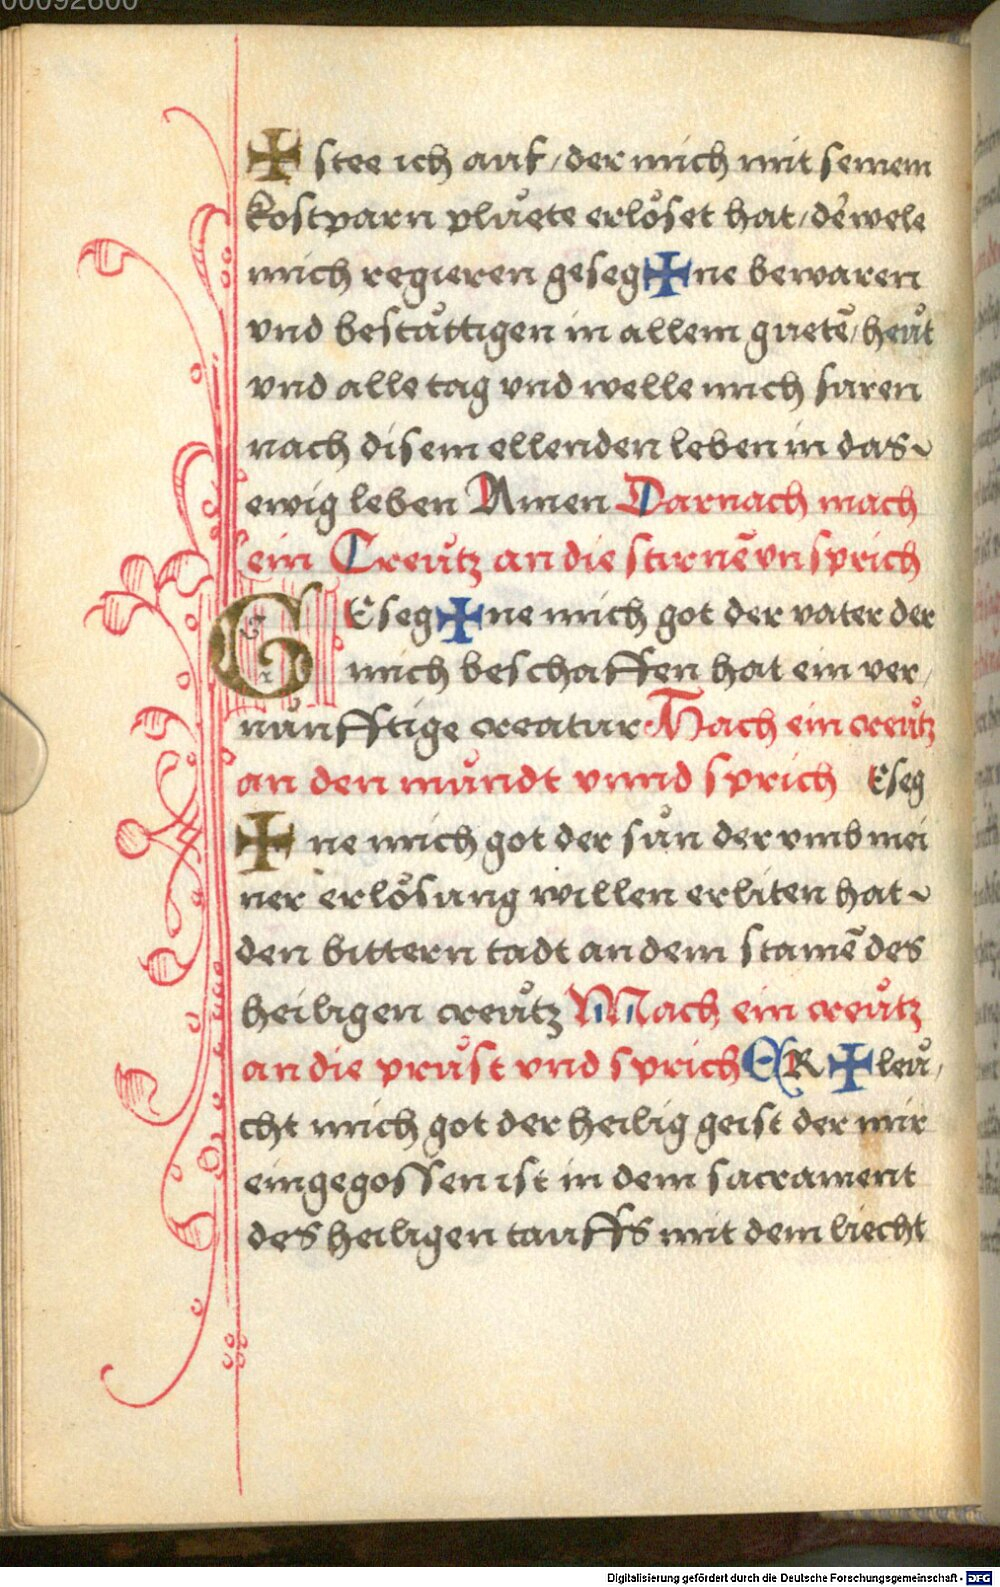 00092600
✠ stee ich auf / der mich mit seinem
kostparn plůete erlőset hat / dē wele
mich regieren geseg✠ne bewaren
vnd beståttigen in allem guetē / heůt
vnd alle tag vnd welle mich fůren
nach disem ellenden leben in das
ewig leben Amen Darnach mach
ein Creůtz an die stirnē vn̄ sprich
GEseg✠ne mich got der vater der
mich beschaffen hat ein ver/
nůnfftige creatur Mach ein creůtz
an den můndt vnnd sprich Eseg
✠ ne mich got der sůn der vmb mei
ner erlősung willen erliten hat
den bittern tadt an dem stamē des
heiligen creůtz Mach ein creůtz
an die průst vnd sprich ER✠leů/
cht mich got der heilig geist der mir
eingegossen ist in dem sacrament
des heiligen tauffs mit dem liecht
Digitalisierung gefördert durch die Deutsche Forschungsgemeinschaft - DFG